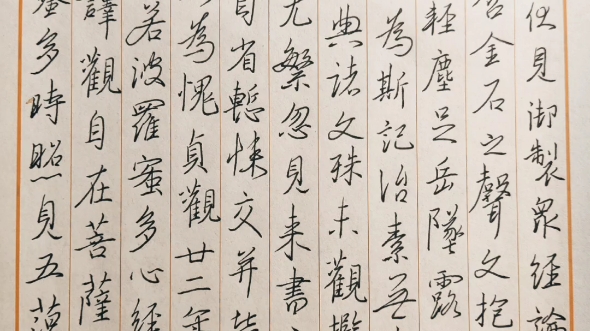 伏見御製眾經論
含金石之聲文抱
輕塵足岳墜露
為斯記治素無
典諸文殊未觀攬
尤繁忽見来書
自省慙悚交并
為愧貞觀廿二年
若波羅蜜多心經
譯觀自在菩薩
多時照見五蘊